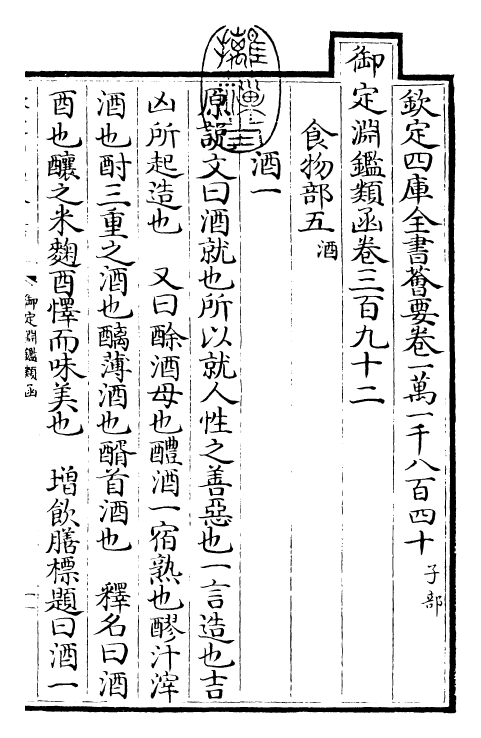 欽定四庫全書薈要卷一萬一千八百四十 子部
御定淵鑑類函卷三百九十二
食物部五 酒
酒一
原說文曰酒就也所以就人性之善惡也一言造也吉
凶所起造也 又曰酴酒母也醴酒一宿熟也醪汁滓
酒也酎三重之酒也醨薄酒也醑首酒也 釋名曰酒
酉也釀之米麴酉懌而味美也 增飲膳標題曰酒一
御定淵鑑類函